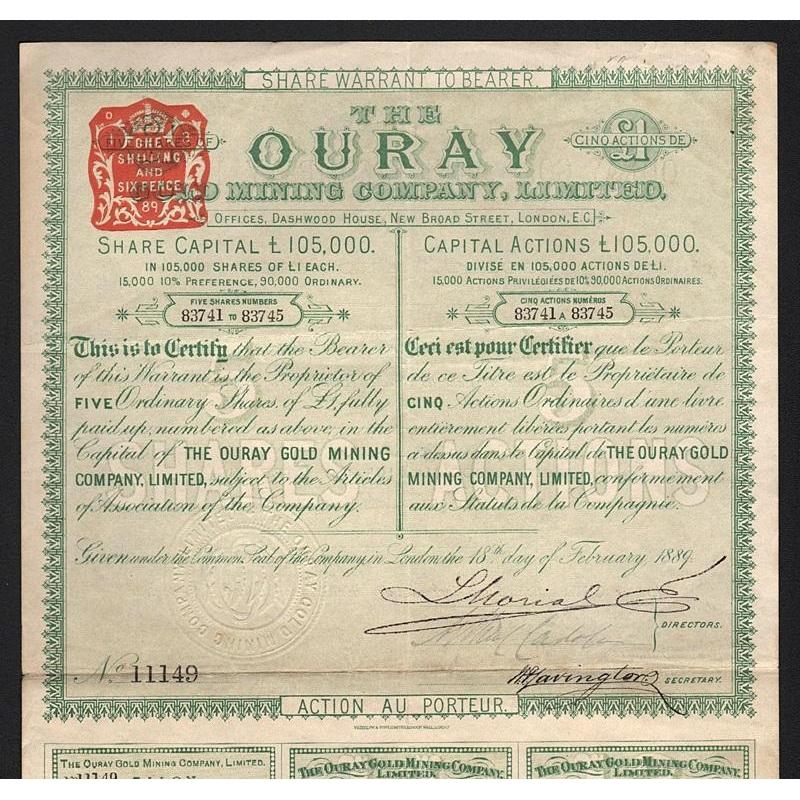 SHARE WARRANT TO BEARER.
THE
OURAY
GOLD MINING COMPANY, LIMITED.
£1
CINQ ACTIONS DE
SHILLING
AND
SIXPENCE
89
OFFICES, DASHWOOD HOUSE, NEW BROAD STREET, LONDON, E.C.
SHARE CAPITAL £105,000.
IN 105,000 SHARES OF £1 EACH.
15,000 10% PREFERENCE, 90,000 ORDINARY.
FIVE SHARES NUMBERS
83741 TO 83745
This is to Certify that the Bearer
of this Warrant is the Proprietor of
FIVE Ordinary Shares of £1, fully
paid up, numbered as above, in the
Capital of THE OURAY GOLD MINING
COMPANY, LIMITED, subject to the Articles
of Association of the Company.
5
SHARES
CAPITAL ACTIONS £105,000.
DIVISÉ EN 105,000 ACTIONS DE £1.
15,000 ACTIONS PRIVILÉGIÉES DE 10% 90,000 ACTIONS ORDINAIRES.
CINQ ACTIONS NUMÉROS
83741 A 83745
Ceci est pour Certifier que le Porteur
de ce Titre est le Propriétaire de
CINQ Actions Ordinaires d'une livre
entièrement libérées portant les numéros
ci-dessus dans le Capital de THE OURAY GOLD
MINING COMPANY, LIMITED, conformement
aux Statuts de la Compagnie.
5
ACTIONS
Given under the Common Seal of the Company, in London, the 18th day of February, 1889.
DIRECTORS.
No. 11149
SECRETARY.
ACTION AU PORTEUR.
THE OURAY GOLD MINING COMPANY, LIMITED.
No 11149
THE OURAY GOLD MINING COMPANY,
LIMITED.
THE OURAY GOLD MINING COMPANY,
LIMITED.